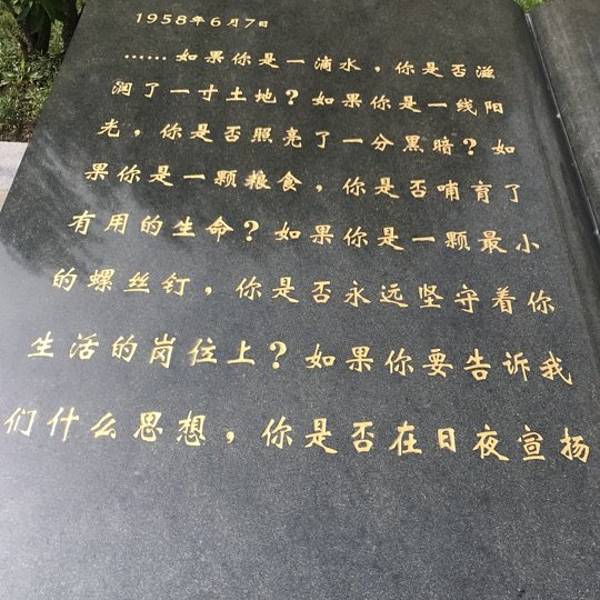 1958年6月7日
……如果你是一滴水，你是否滋
润了一寸土地？如果你是一线阳
光，你是否照亮了一分黑暗？如
果你是一颗粮食，你是否哺育了
有用的生命？如果你是一颗最小
的螺丝钉，你是否永远坚守着你
生活的岗位上？如果你要告诉我
们什么思想，你是否在日夜宣扬